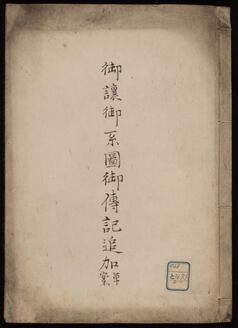 御讓御系圖御傳記追加草案